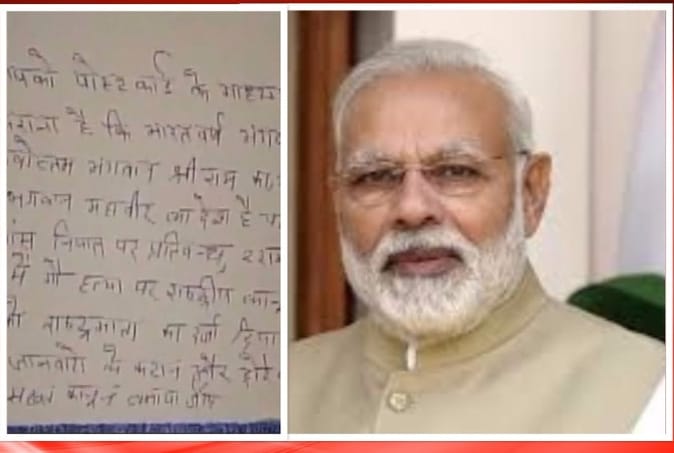 पको पोस्ट कार्ड के माध्य
कराना है कि भारतवर्ष भगव
भगवान श्री राम का
भगवान महावीर का देश है
पर प्रतिबन्ध,
में गौ हत्या पर राष्ट्रीय कानून
राष्ट्रमाता का दर्जा दिया
जानवरो के कटान और
कानून बनाया जाए